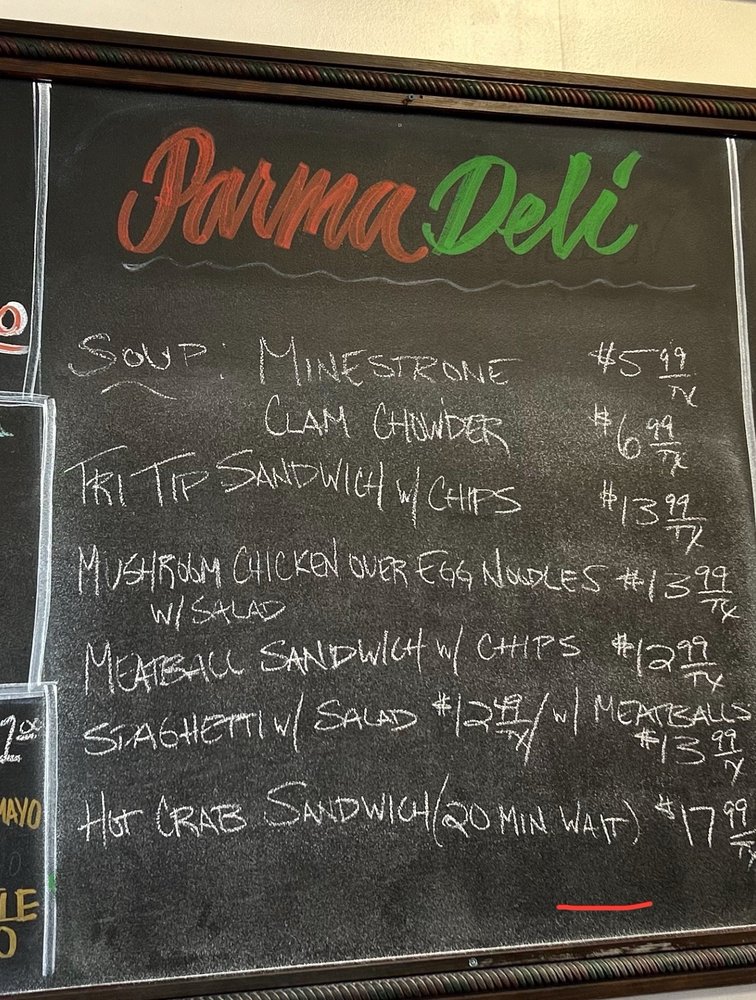 Parma Deli
SOUP: MINESTRONE $5 99/TX
CLAM CHOWDER $6 99/TX
TRI TIP SANDWICH W/ CHIPS $13 99/TX
MUSHROOM CHICKEN OVER EGG NOODLES $13 99/TX
W/ SALAD
MEATBALL SANDWICH W/ CHIPS $12 99/TX
SPAGHETTI W/ SALAD $12 49/TX / W/ MEATBALLS
$13 99/TX
HOT CRAB SANDWICH (20 MIN WAIT) $17 99/TX
MAYO
LE